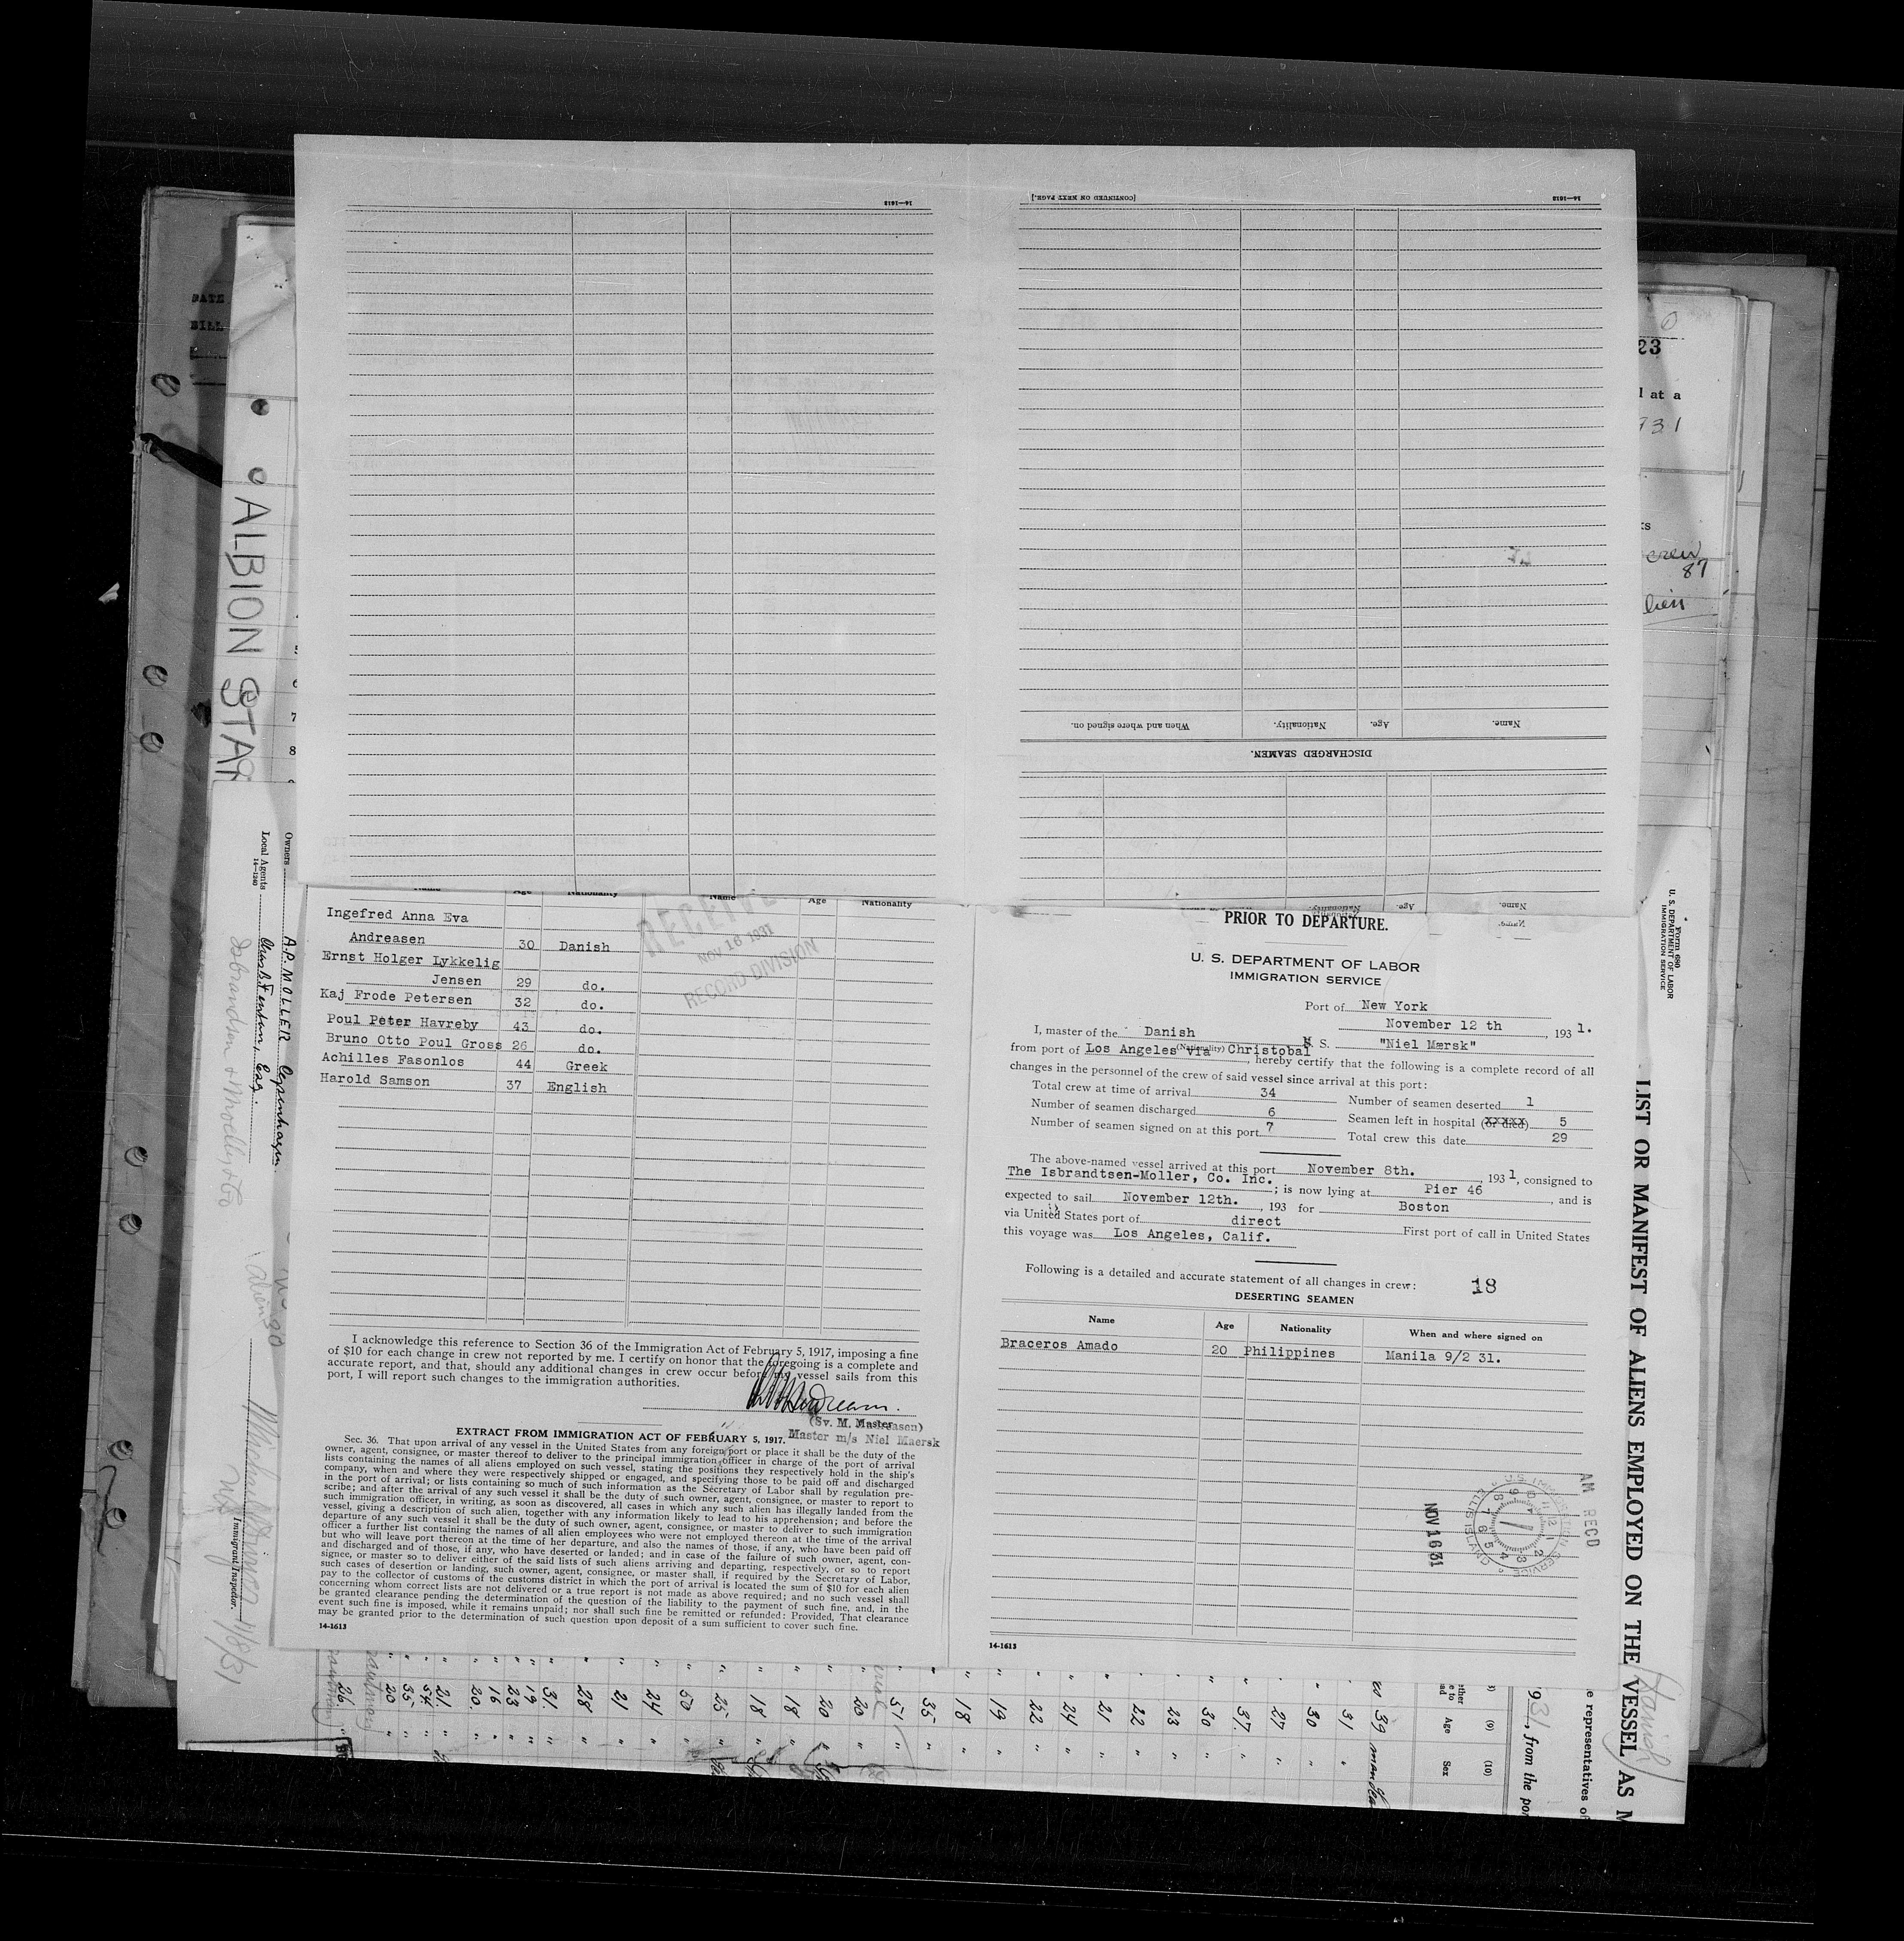 14—1613
[CONTINUED ON NEXT PAGE.]
14—1613
When and where signed on.
Nationality.
Age.
Name.
DISCHARGED SEAMEN.
Nationality.
Age.
Name.
Name
Age
Nationality
Name
Age
Nationality
Ingefred Anna Eva
Andreasen 30 Danish
Ernst Holger Lykkelig
Jensen 29 do.
Kaj Frode Petersen 32 do.
Poul Peter Havreby 43 do.
Bruno Otto Poul Gross 26 do.
Achilles Fasonlos 44 Greek
Harold Samson 37 English
NOV 16 1931
RECORD DIVISION
I acknowledge this reference to Section 36 of the Immigration Act of February 5, 1917, imposing a fine
of $10 for each change in crew not reported by me. I certify on honor that the foregoing is a complete and
accurate report, and that, should any additional changes in crew occur before my vessel sails from this
port, I will report such changes to the immigration authorities.
(Sv. M. Andreasen)
Master
Master m/s Niel Maersk
EXTRACT FROM IMMIGRATION ACT OF FEBRUARY 5, 1917.
Sec. 36. That upon arrival of any vessel in the United States from any foreign port or place it shall be the duty of the
owner, agent, consignee, or master thereof to deliver to the principal immigration officer in charge of the port of arrival
lists containing the names of all aliens employed on such vessel, stating the positions they respectively hold in the ship's
company, when and where they were respectively shipped or engaged, and specifying those to be paid off and discharged
in the port of arrival; or lists containing so much of such information as the Secretary of Labor shall by regulation pre-
scribe; and after the arrival of any such vessel it shall be the duty of such owner, agent, consignee, or master to report to
such immigration officer, in writing, as soon as discovered, all cases in which any such alien has illegally landed from the
vessel, giving a description of such alien, together with any information likely to lead to his apprehension; and before the
departure of any such vessel it shall be the duty of such owner, agent, consignee, or master to deliver to such immigration
officer a further list containing the names of all alien employees who were not employed thereon at the time of the arrival
but who will leave port thereon at the time of her departure, and also the names of those, if any, who have been paid off
and discharged and of those, if any, who have deserted or landed; and in case of the failure of such owner, agent, con-
signee, or master so to deliver either of the said lists of such aliens arriving and departing, respectively, or so to report
such cases of desertion or landing, such owner, agent, consignee, or master shall, if required by the Secretary of Labor,
pay to the collector of customs of the customs district in which the port of arrival is located the sum of $10 for each alien
concerning whom correct lists are not delivered or a true report is not made as above required; and no such vessel shall
be granted clearance pending the determination of the question of the liability to the payment of such fine, and, in the
event such fine is imposed, while it remains unpaid; nor shall such fine be remitted or refunded: Provided, That clearance
may be granted prior to the determination of such question upon deposit of a sum sufficient to cover such fine.
14-1613
PRIOR TO DEPARTURE.
U. S. DEPARTMENT OF LABOR
IMMIGRATION SERVICE
Port of New York
November 12 th, 1931.
I, master of the Danish S. S. "Niel Mærsk"
(Nationality)
from port of Los Angeles via Christobal, hereby certify that the following is a complete record of all
changes in the personnel of the crew of said vessel since arrival at this port:
Total crew at time of arrival 34
Number of seamen deserted 1
Number of seamen discharged 6
Seamen left in hospital (or died) 5
Number of seamen signed on at this port 7
Total crew this date 29
The above-named vessel arrived at this port November 8th. 1931, consigned to
The Isbrandtsen-Moller, Co. Inc.; is now lying at Pier 46, and is
expected to sail November 12th., 193 for Boston
via United States port of direct First port of call in United States
this voyage was Los Angeles, Calif.
Following is a detailed and accurate statement of all changes in crew: 18
DESERTING SEAMEN
Name Age Nationality When and where signed on
Braceros Amado 20 Philippines Manila 9/2 31.
AM RECD
U.S. IMMIGRATION SERVICE
ELLIS ISLAND
NOV 16 31
14-1613
ALBION STAR
DATE
BILL
Owners A.P. MOLLER Copenhagen
Local Agents
14—1240
Immigrant Inspector.
11/8/31
23
l at a
931
crew
87
Form 680
U. S. DEPARTMENT OF LABOR
IMMIGRATION SERVICE
LIST OR MANIFEST OF ALIENS EMPLOYED ON THE VESSEL AS M
Danish
e representatives of
31, from the por
(9)
(10)
Age
Sex
39
31
30
27
37
30
23
22
21
24
22
19
18
35
51
20
20
18
18
25
50
24
21
28
31
19
23
16
20
21
54
35
20
26